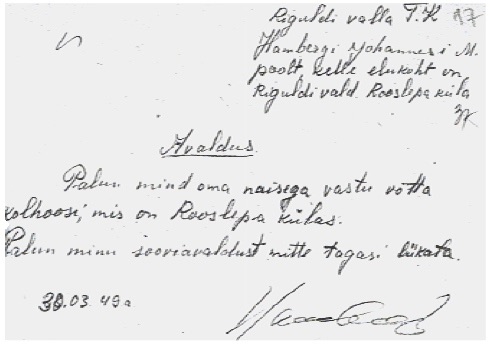 Riguldi valla T.K 97
Hambergi Johannes i M.
poolt, kelle elukoht on
Riguldi vald. Rooslepa küla
Avaldus.
Palun mind oma naisega vastu võtta
kolhoosi, mis on Rooslepa külas.
Palun minu sooviavaldust mitte tagasi lükata.
30.03.49a